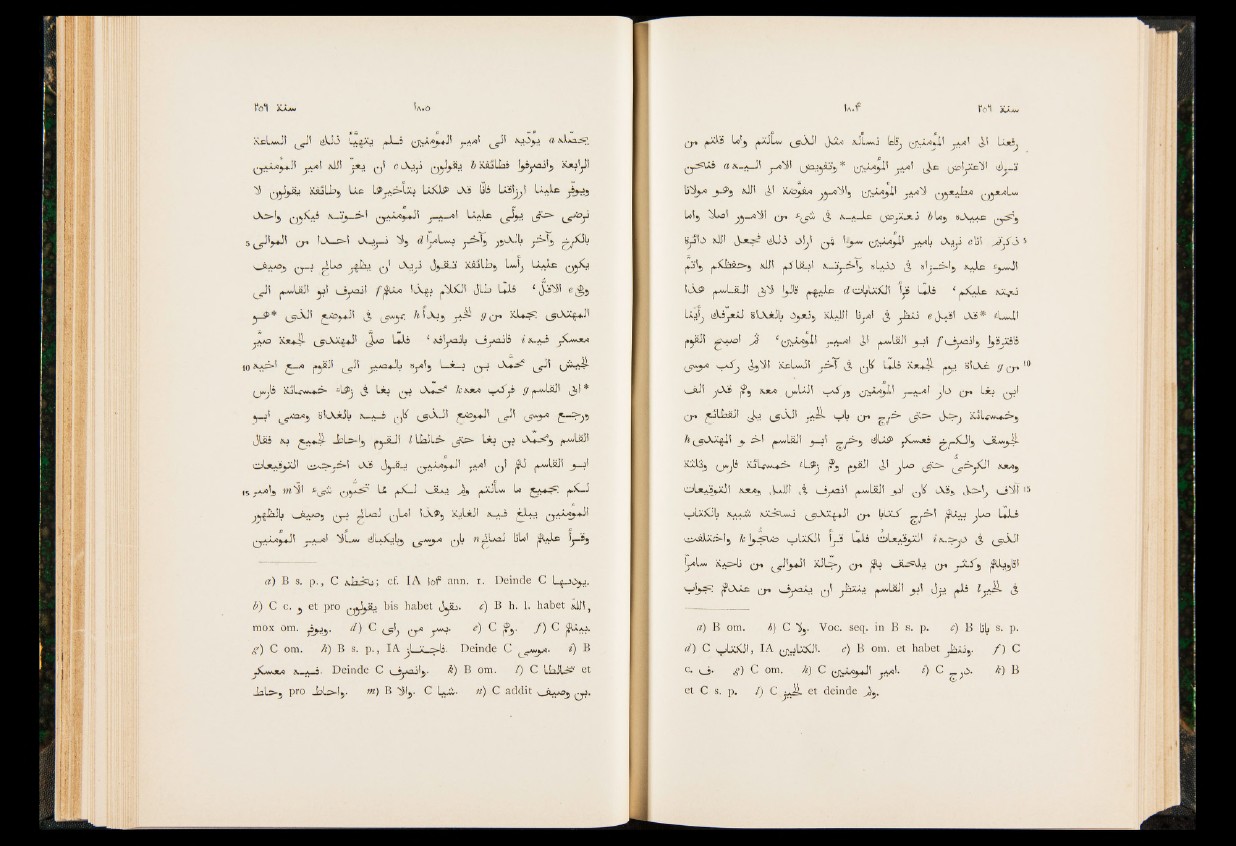 سنة ٢٥٦ ١٨٠٤
رفعنا الى امير المؤمنين رقاعا نسأله مثل الذى سألتم واما قلتم من
ترك الاعتراض على امير المؤمنين *وتفويض الامر اليه a فنحن
سامعون مطيعون لامير المؤمنين والامور مفوّضة الى الله وهو مولانا
ونحن عبيده وما b نعترض عليه فى شىء من الامور اصلا واما
5 ذكركم انا c نريد بامير المؤمنين سوءا فمن اراد ذلك فجعل الله دائرة
السوء عليه واخزاه فى دنياه وآخرته ابقاكم الله وحفظكم واتمّ
نعمته عليكم ، فلمّا قرأ الكتابات d عليهم قالوا لابى القاسم هذا
المساء *قد اقبل e ننظر فى امرنا الليلة ونعود بالغداة لنعرّفك رأينا
فافترقوا وانصرف f ابو القاسم الى امير المؤمنين ، ثم اصبح القوم
10 من g غداة يوم الجمعة فلمّا كان فى آخر الساعة الاولى ركب موسى
ابن بغا من دار امير المؤمنين وركب الناس معه وهم قدر الف
وخمسمائة رجل حتى خرج من باب الحير الذى يلى القطائع من
الجوسف والكرخ فعسكر هناك وخرج ابو القاسم اخو المهتدى h
ومعه الكرخىّ حتى صار الى القوم وهم زهاء خمسمائة فارس وثلثة
15 آلاف راجل وقد كان ابو القاسم انصرف فى الليل ومعه التوقيعات
فلمّا صار بينهم اخرج كتابا من المهتدى نسخته شبيه بالكتاب
الذى فى درجه i التوقيعات فلمّا قرأ الكتاب ضجّوا k واختلفت
اقاويلهم وكثر من يلحق بهم من رجّالة الموالى من ناحية سامرّا
فى الحير l فلم يزل ابو القاسم ينتظر ان ينصرف من عندهم بجواب
a) B om. b) C ولا. Voc. seq. in B s. p. c) B بانا s. p.
d) C الكتاب, IA الكتابين. e) B om. et habet وننظر. f) C
c. ف. g) C om. h) C امير المؤمنين. i) C درج. k) B
et C s. p. l) C الحيز et deinde ولم.
سنة ٢٥٦ ١٨٠٥
يحصله a يؤدّيه الى امير المؤمنين فلم يتهيّأ ذلك الى الساعة
الرابعة وانصرفوا فطائفة b يقولون نريد c ان يعزّ الله امير المؤمنين
ويوفّر علينا ارزاقنا فانّا قد هلكنا بتأخيرها عنا وطائفة يقولون لا
نرضى حتى يولّى علينا امير المؤمنين اخوته فيكون واحد
5 بالكرخ وآخر بالدور وآخر بسامرّا d ولا نريد احدا من الموالى
يكون علينا رأسا وطائفة تقول نريد ان يظهر صالح بن وصيف
وفى e الاقلّ ، فلمّا طال الكلام بهذا منهم f انصرف ابو القاسم الى
المهتدى بجملة من g الخبر وبدأ h بموسى فى الموضع الذى *هو
معسكر فيه i فانصرف بانصرافه ، فلمّا صلّى المهتدى الجمعة صيّر
10 الجيش الى محمّد بن بغا وامره بالمصير الى القوم مع اخيه
*ابى القاسم g فركب معه k محمّد بن بغا فى زهاء خمسمائة فارس
ورجع موسى الى الموضع الذى كان فيه بالغداة ومضى ابو
القاسم ومحمّد بن بغا حتى خالطا l القوم واحاط الجميع به فقال
ابو القاسم لهم ان امير المؤمنين يقول قد اخرجت التوقيعات
15 لكم بجميع ما سألتم ولم يبقى لكم مما تحبّون شىء الّا m وامير
المؤمنين يبلغ فيه الغاية وهذا امان لصالح بن وصيف بالظهور
وقرأ عليهم امانا لصالح n بان موسى وبايكباك سألا امير المؤمنين
a) B s. p., C ; cf. IA ١٥٣ ann. 1. Deinde C
b) C c. و et pro يقولون bis habet يقول. c) B h. l. habet الله,
mox om. ويوفر. d) C من راى. e) C وهم. f) C بينهم.
g) C om. h) B s. p., IA . Deinde C موسى. i) B
فيه معسكر. Deinde C وانصرف. k) B om. l) C خالطا et
واحاط pro واحاط. m) B والا. C شيا. n) C addit بن وصيف.